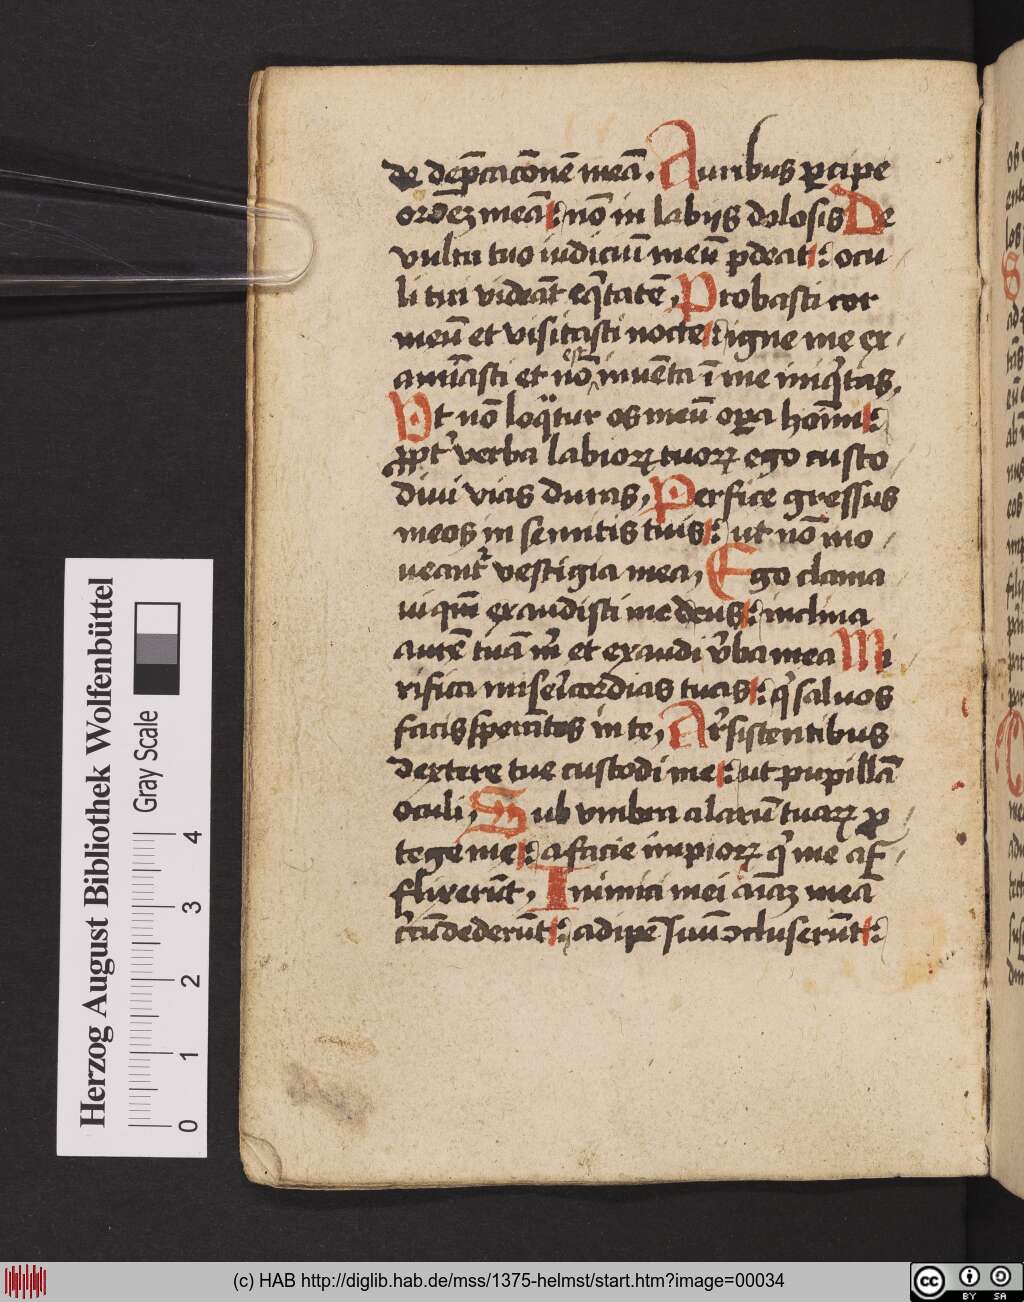 de dep̄cacōnē meā. Auribus ꝑcipe
ordēꝫ meā: nō in labijs dolosis De
vultu tuo iudiciū meū ꝓdeat: ocu
li tui videāt eq̄tatē, Probasti cor
meū et visitasti nocte: igne me ex
amīasti et nō est inuēta ī me iniq̄tas,
Vt nō loq̄tur os meū oꝑa homī:
ꝓpt᷑ verba labioꝝ tuoꝝ ego custo
diui vias duras, Perfice gressus
meos in semitis tuis: ut nō mo
ueant᷑ vestigia mea, Ego clama
ui qm̄ exaudisti me deus: inclina
aurē tuā m̄ et exaudi v̄ba mea Mi
rifica mis̄ericordias tuas: q̄ saluos
facis sperātes in te, A r̄sistentibus
dextere tue custodi me: ut pupillā
oculi, Sub vmbra alarū tuaꝝ ꝓ
tege me: a facie impioꝝ q̄ me af
flixerūt, Inimici mei aīaꝫ meā
c̄cūdederūt: adipē suū ↄcluserūt:
Herzog August Bibliothek Wolfenbüttel
Gray Scale
0 1 2 3 4
(c) HAB http://diglib.hab.de/mss/1375-helmst/start.htm?image=00034
cc BY SA